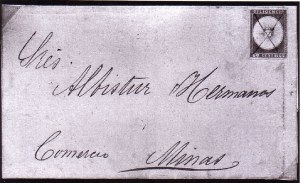 Sres.
Albistur Hermanos
Comercio Minas